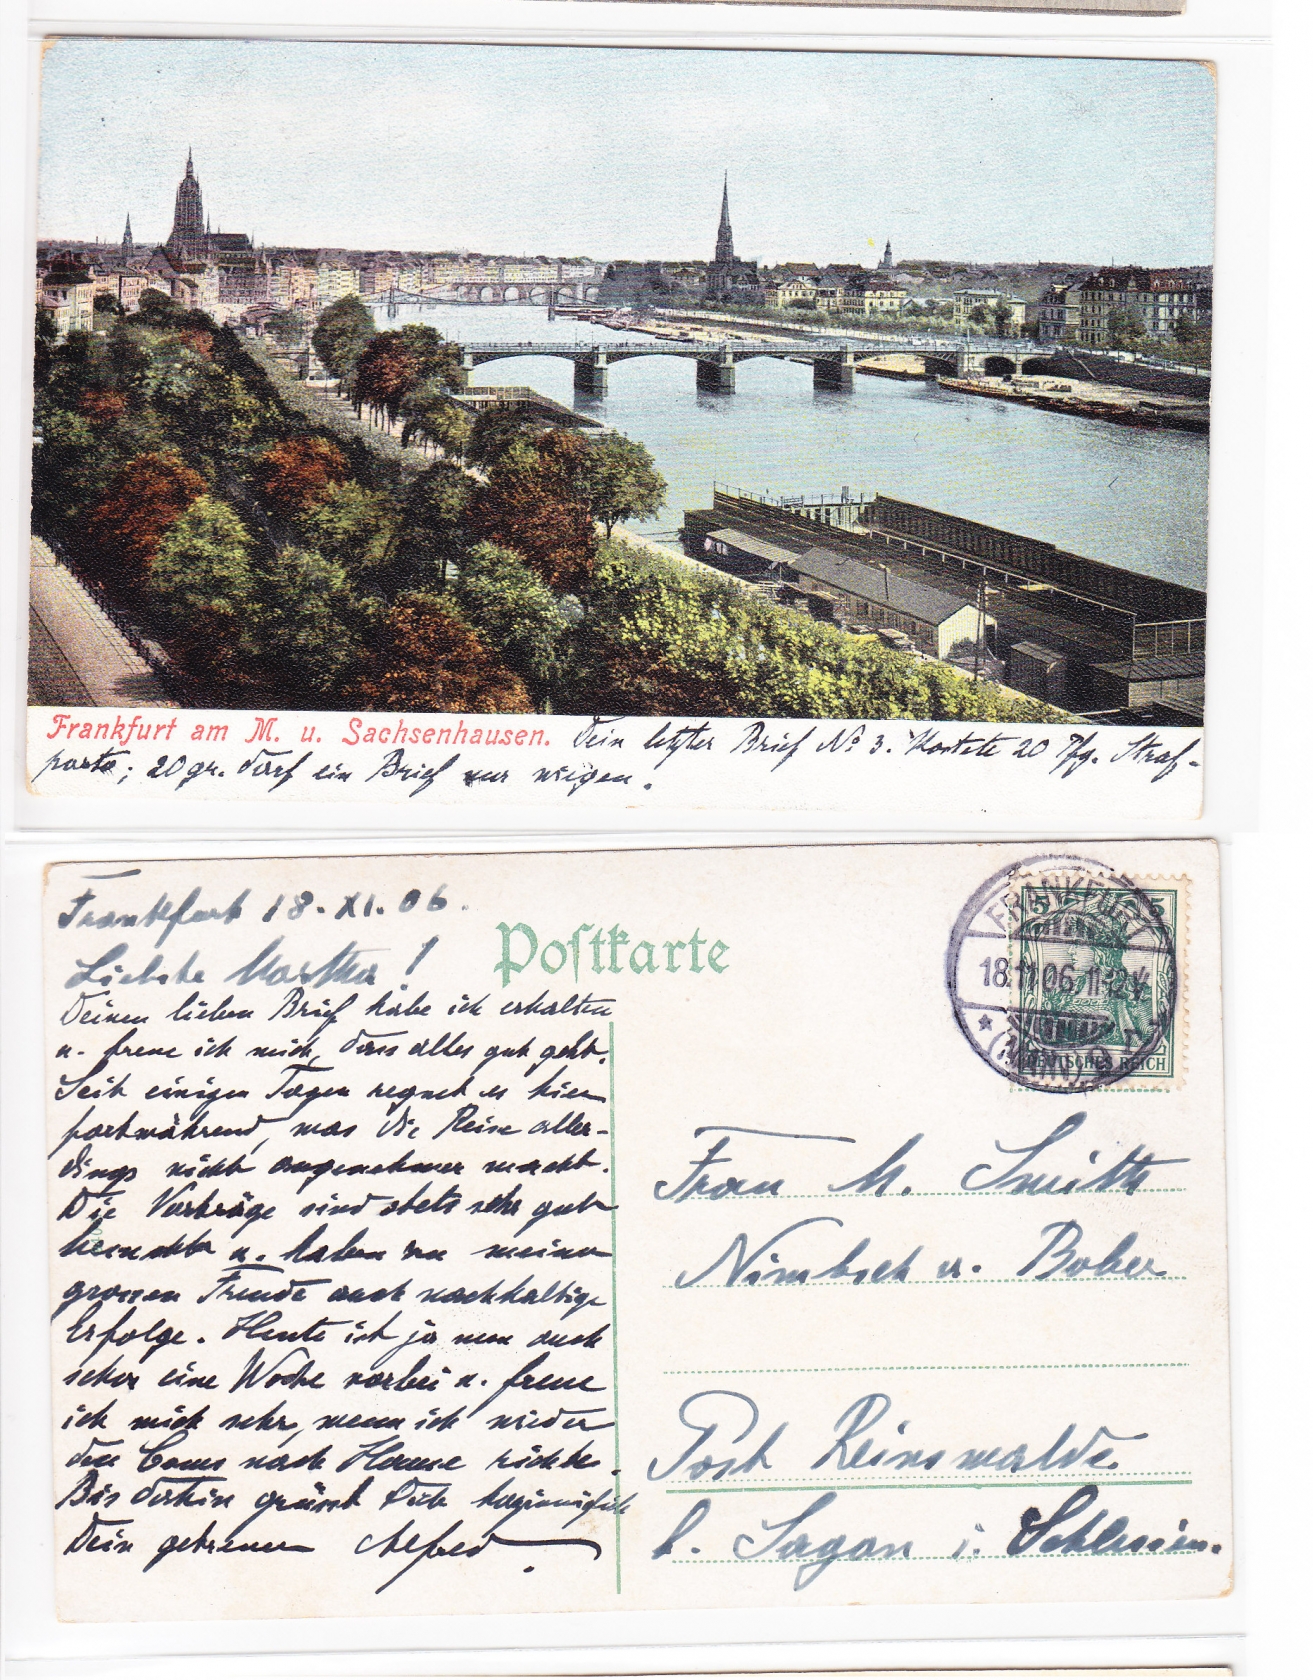 Frankfurt am M. u. Sachsenhausen.
Dein letzter Brief No 3. kostete 20 Pfg. Straf-
porto; 20 gr. darf ein Brief nur wiegen.
Frankfurt 18. XI. 06.
Postkarte
Liebste Martha!
Deinen lieben Brief habe ich erhalten
u. freue ich mich, dass alles gut geht.
Seit einigen Tagen regnet es hier
fortwährend, was die Reise aller-
dings nicht angenehmer macht.
Die Vorträge sind stets sehr gut
besucht u. haben zu meiner
grossen Freude auch nachhaltige
Erfolge. Heute ist ja nun auch
schon eine Woche vorbei u. freue
ich mich sehr, wenn ich wieder
den Cours nach Hause richte.
Bis dahin grüsst Dich herzinnigst
Dein getreuer Alfred.
5 5
FRANKFURT
18.11.06. 11-12 V
* (MAIN)
DEUTSCHES REICH
Frau M. Smith
Nimbsch a. Bober
Post Reinswalde
b. Sagan i. Schlesien.